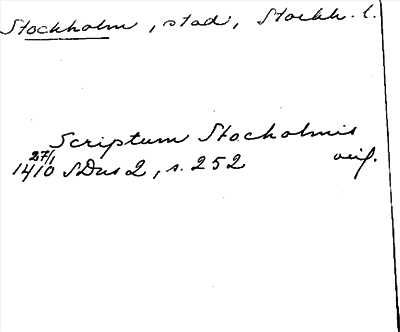 Stockholm, stad, Stockh. l.
Scriptum Stocholmis
27/1
1410 SDns 2, s. 252 orig.